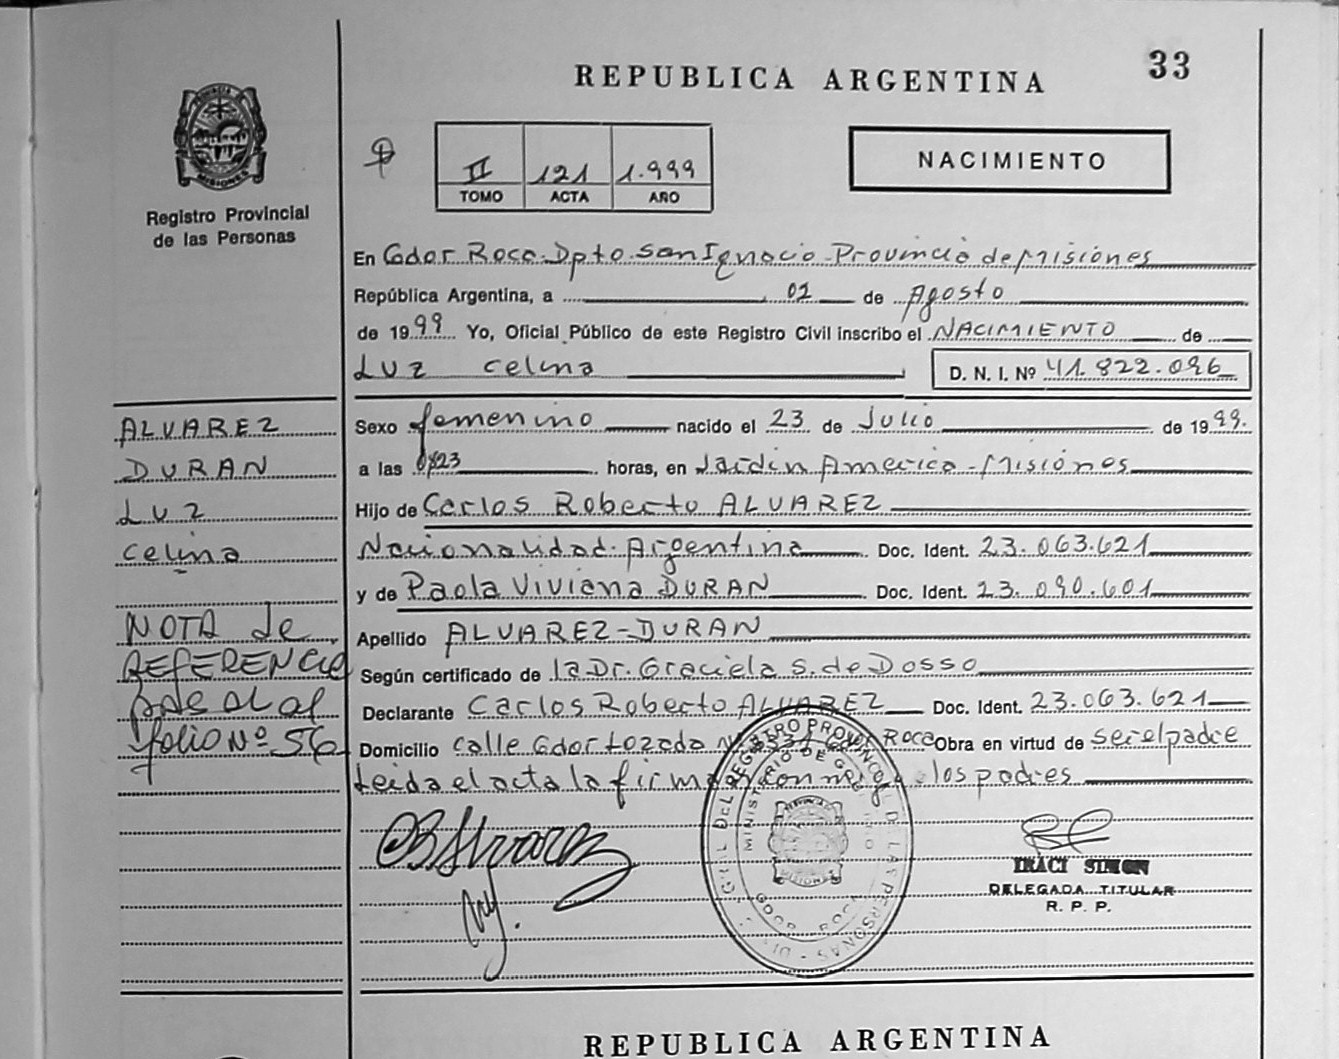 33
REPUBLICA ARGENTINA
NACIMIENTO
II 121 1.999
TOMO ACTA AÑO
MISIONES
Registro Provincial
de las Personas
En Gdor Roca. Dpto. San Ignacio. Provincia de Misiones
República Argentina, a 02 de Agosto
de 1999 Yo, Oficial Público de este Registro Civil inscribo el NACIMIENTO de
Luz Celina D. N. I. Nº 41.822.096
Sexo femenino nacido el 23 de Julio de 1999.
a las 0823 horas, en Jardin America - Misiónes
Hijo de Carlos Roberto ALVAREZ
Nacionalidad. Argentina Doc. Ident. 23.063.621
y de Paola Viviana DURAN Doc. Ident. 23.090.601
Apellido ALVAREZ-DURAN
Según certificado de la Dr. Graciela S. de Dosso
Declarante Carlos Roberto ALVAREZ Doc. Ident. 23.063.621
Domicilio calle Gdor Lozada Roca Obra en virtud de ser el padre
Leida el acta la firman conmigo los padres
ALVAREZ
DURAN
Luz
Celina
NOTA de
REFERENCIA
pase al al
folio Nº 56
DEL REGISTRO PROVINCIAL DE LAS PERSONAS
MINISTERIO DE
MISIONES
GDOR. ROCA
IRACI SIMON
DELEGADA TITULAR
R. P. P.
REPUBLICA ARGENTINA